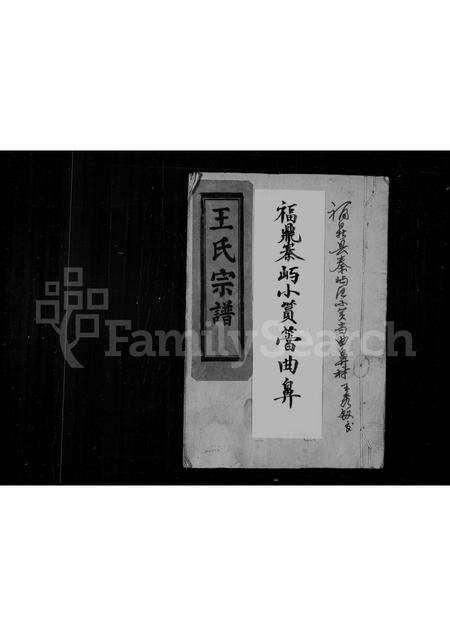 福鼎县秦屿区小筼筜曲鼻村
福鼎秦屿小筼筜曲鼻
王氏宗譜
FamilySearch